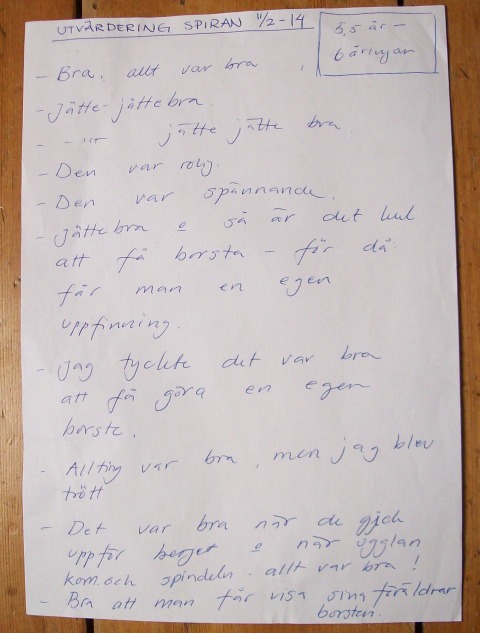 UTVÄRDERING SPIRAN 11/2-14
5,5 år -
6 åringar
- Bra, allt var bra
- Jätte-jättebra.
- -"- jätte jätte bra.
- Den var rolig.
- Den var spännande.
- Jättebra o så är det kul
att få borsta - för då
får man en egen
uppfinning.
- Jag tyckte det var bra
att få göra en egen
borste.
- Allting var bra, men jag blev
trött
- Det var bra när de gick
uppför berget o när ugglan
kom och spindeln - allt var bra!
- Bra att man får visa sina föräldrar
borsten.